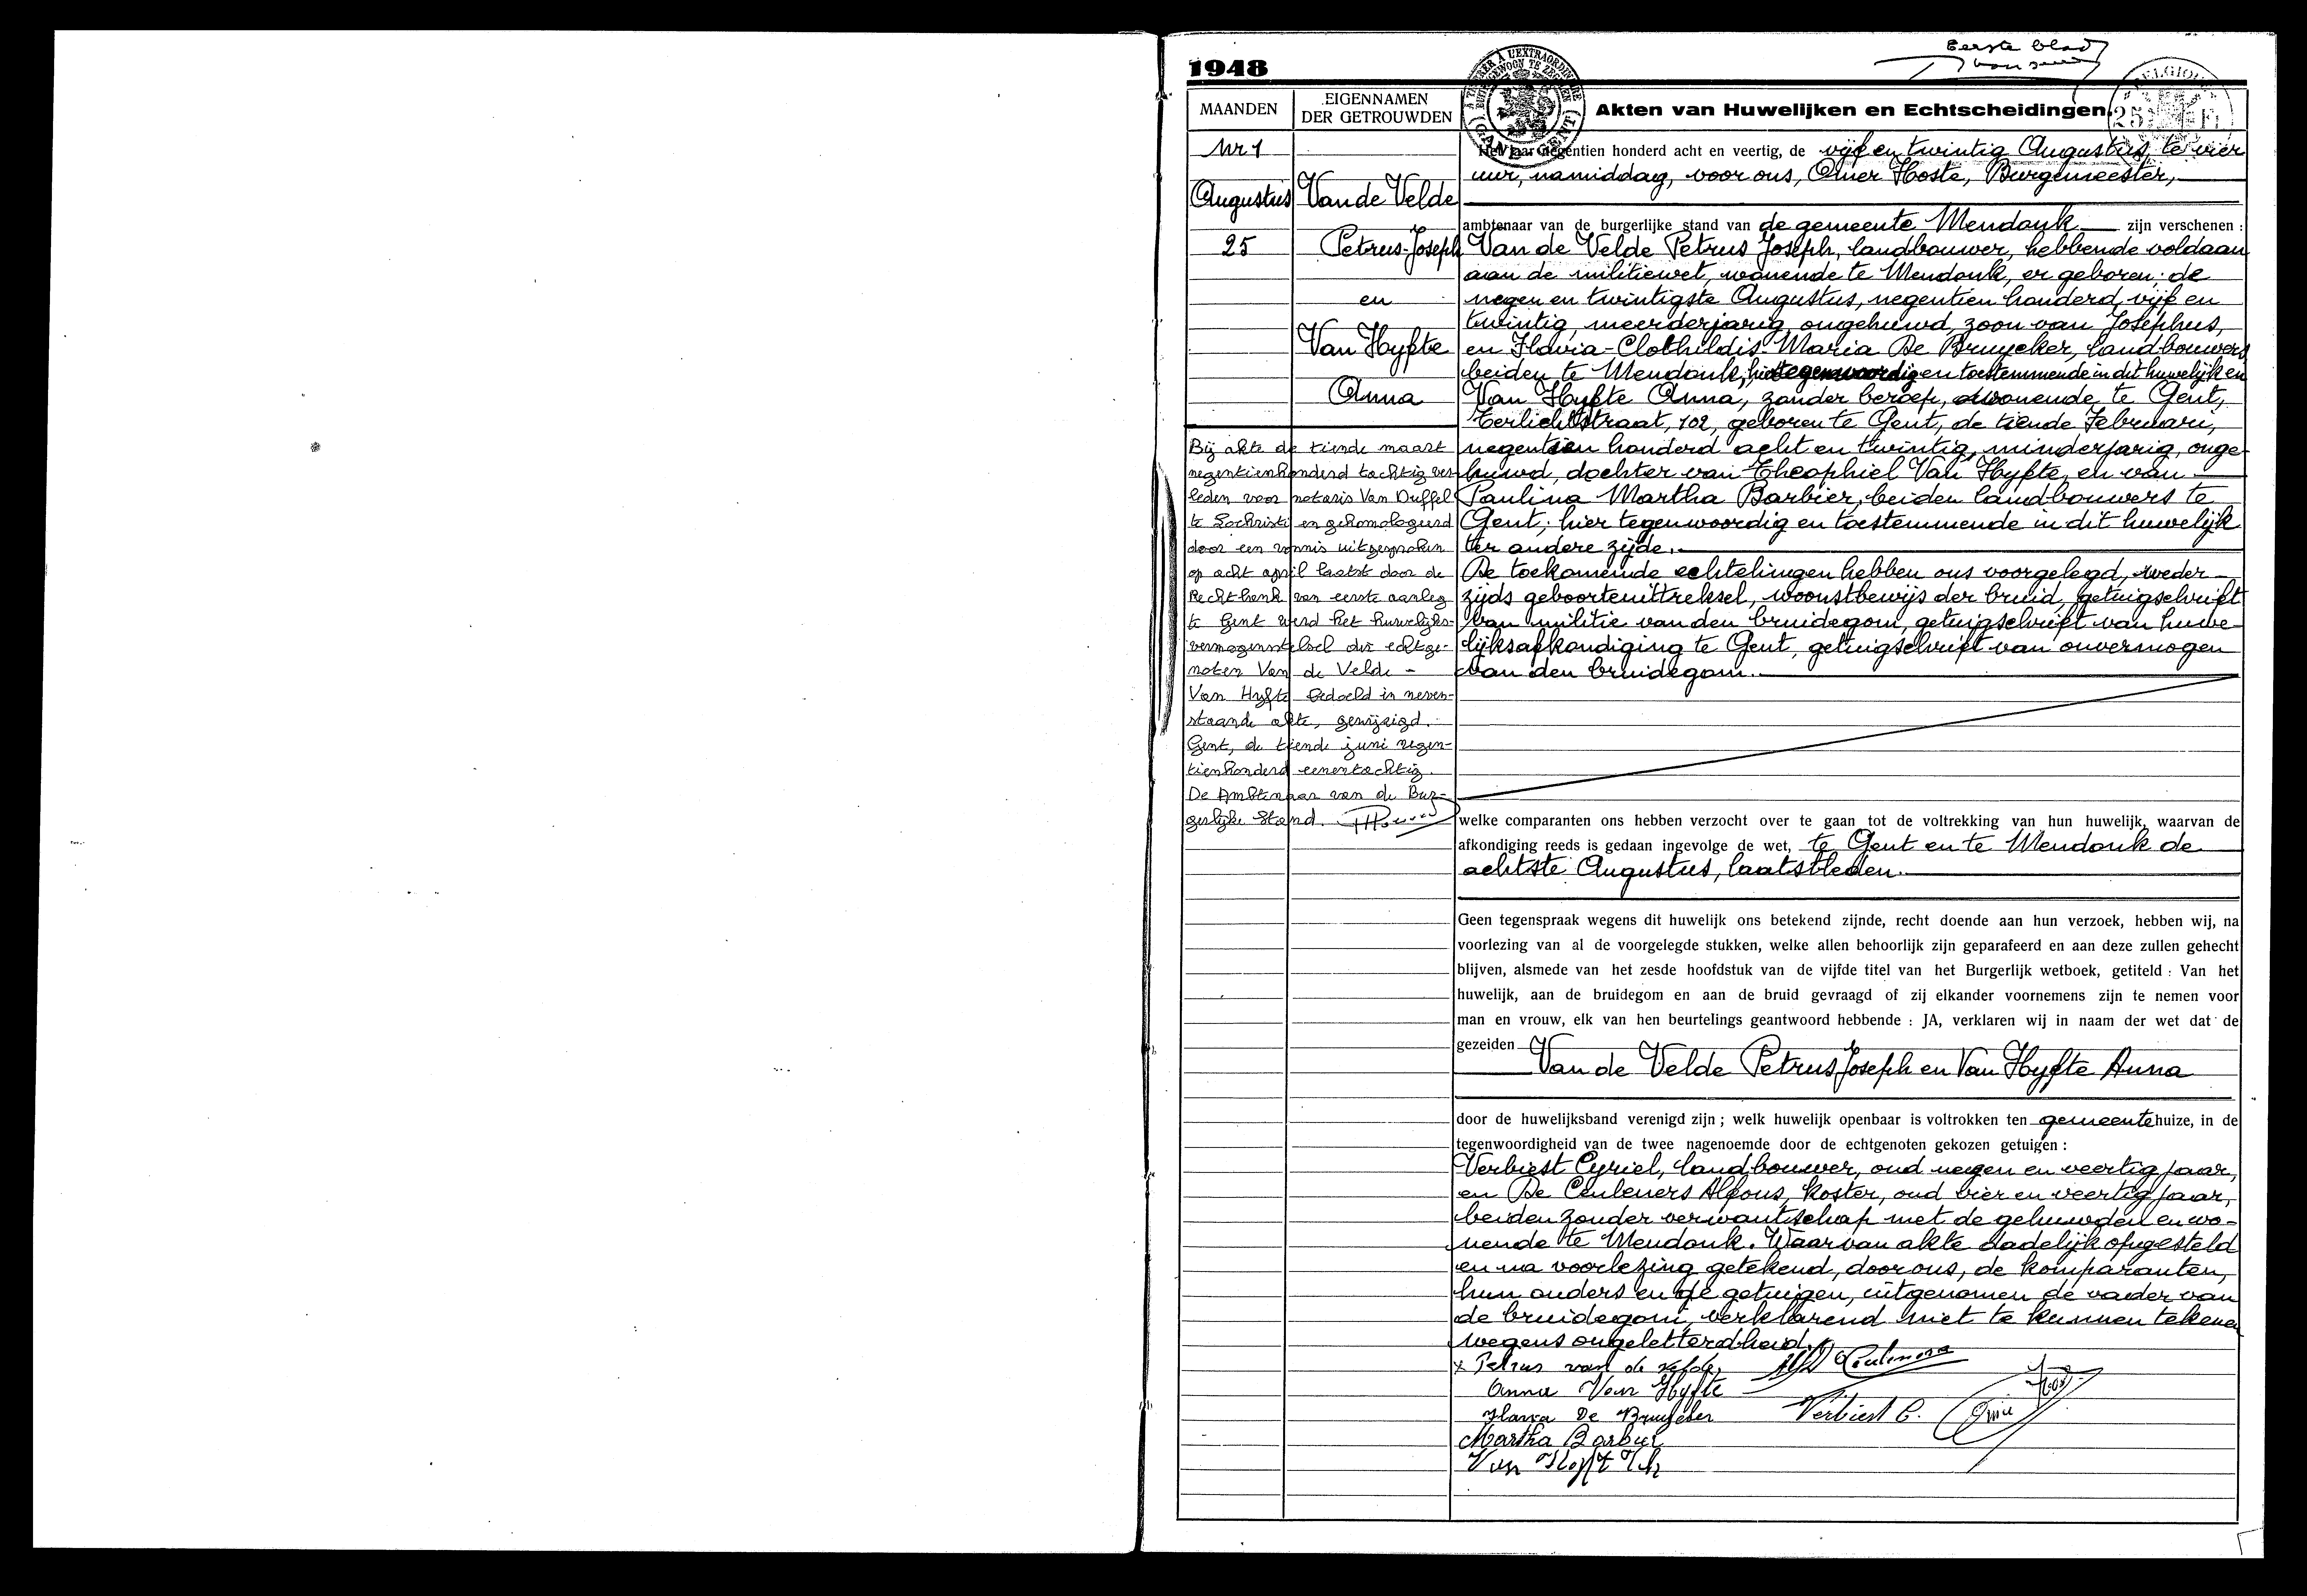 Eerste blad
1948
MAANDEN
EIGENNAMEN
DER GETROUWDEN
Akten van Huwelijken en Echtscheidingen.
Nr 1
Augustus
25
Van de Velde
Petrus-Joseph
en
Van Hyfte
Anna
Het jaar negentien honderd acht en veertig, de vijf en twintig Augustus, te vier
uur, namiddag, voor ons, Omer Hoste, Burgemeester,
ambtenaar van de burgerlijke stand van de gemeente Mendonk zijn verschenen :
Van de Velde Petrus Joseph, landbouwer, hebbende voldaan
aan de militiewet, wonende te Mendonk, er geboren; de
negen en twintigste Augustus, negentien honderd vijf en
twintig, meerderjarig, ongehuwd, zoon van Josephus,
en Flavia-Clothildis-Maria De Bruycker, landbouwers
beiden te Mendonk, hier tegenwoordig en toestemmende in dit huwelijk en
Van Hyfte Anna, zonder beroep, wonende te Gent,
Terlichtstraat, 102, geboren te Gent, de tiende Februari,
negentien honderd acht en twintig, minderjarig, onge-
huwd, dochter van Theophiel Van Hyfte, en van
Paulina Martha Barbier, beiden landbouwers te
Gent; hier tegenwoordig en toestemmende in dit huwelijk
ter andere zijde.
De toekomende echtelingen hebben ons voorgelegd, weder-
zijds geboorteuittreksel, woonstbewijs der bruid, getuigschrift
van militie van den bruidegom, getuigschrift van huwe-
lijksafkondiging te Gent, getuigschrift van onvermogen
van den bruidegom.
Bij akte de tiende maart
negentienhonderd tachtig ver-
leden voor notaris Van Duffel
te Lochristi en gehomologeerd
door een vonnis uitgesproken
op acht april laatst door de
Rechtbank van eerste aanleg
te Gent werd het huwelijks-
vermogensstelsel der echtge-
noten Van de Velde -
Van Hyfte bedoeld in neven-
staande akte, gewijzigd.
Gent, de tiende juni negen-
tienhonderd eenentachtig.
De Ambtenaar van de Bur-
gerlijke Stand.
welke comparanten ons hebben verzocht over te gaan tot de voltrekking van hun huwelijk, waarvan de
afkondiging reeds is gedaan ingevolge de wet, te Gent en te Mendonk de
achtste Augustus, laatstleden.
Geen tegenspraak wegens dit huwelijk ons betekend zijnde, recht doende aan hun verzoek, hebben wij, na
voorlezing van al de voorgelegde stukken, welke allen behoorlijk zijn geparafeerd en aan deze zullen gehecht
blijven, alsmede van het zesde hoofdstuk van de vijfde titel van het Burgerlijk wetboek, getiteld : Van het
huwelijk, aan de bruidegom en aan de bruid gevraagd of zij elkander voornemens zijn te nemen voor
man en vrouw, elk van hen beurtelings geantwoord hebbende : JA, verklaren wij in naam der wet dat de
gezeiden
Van de Velde Petrus Joseph en Van Hyfte Anna
door de huwelijksband verenigd zijn ; welk huwelijk openbaar is voltrokken ten gemeentehuize, in de
tegenwoordigheid van de twee nagenoemde door de echtgenoten gekozen getuigen :
Verbiest Cyriel, landbouwer, oud negen en veertig jaar,
en De Ceuleners Alfons, koster, oud vier en veertig jaar,
beiden zonder verwantschap met de gehuwden en wo-
nende te Mendonk. Waarvan akte dadelijk opgesteld
en na voorlezing getekend, door ons, de komparanten,
hun ouders en de getuigen, uitgenomen de vader van
de bruidegom, verklarend niet te kunnen tekenen
wegens ongeletterdheid.
x Petrus van de velde,
Anna Van Hyfte
Flavia De Bruycker
Verbiest C.
Martha Barbier
Van Hyft Th